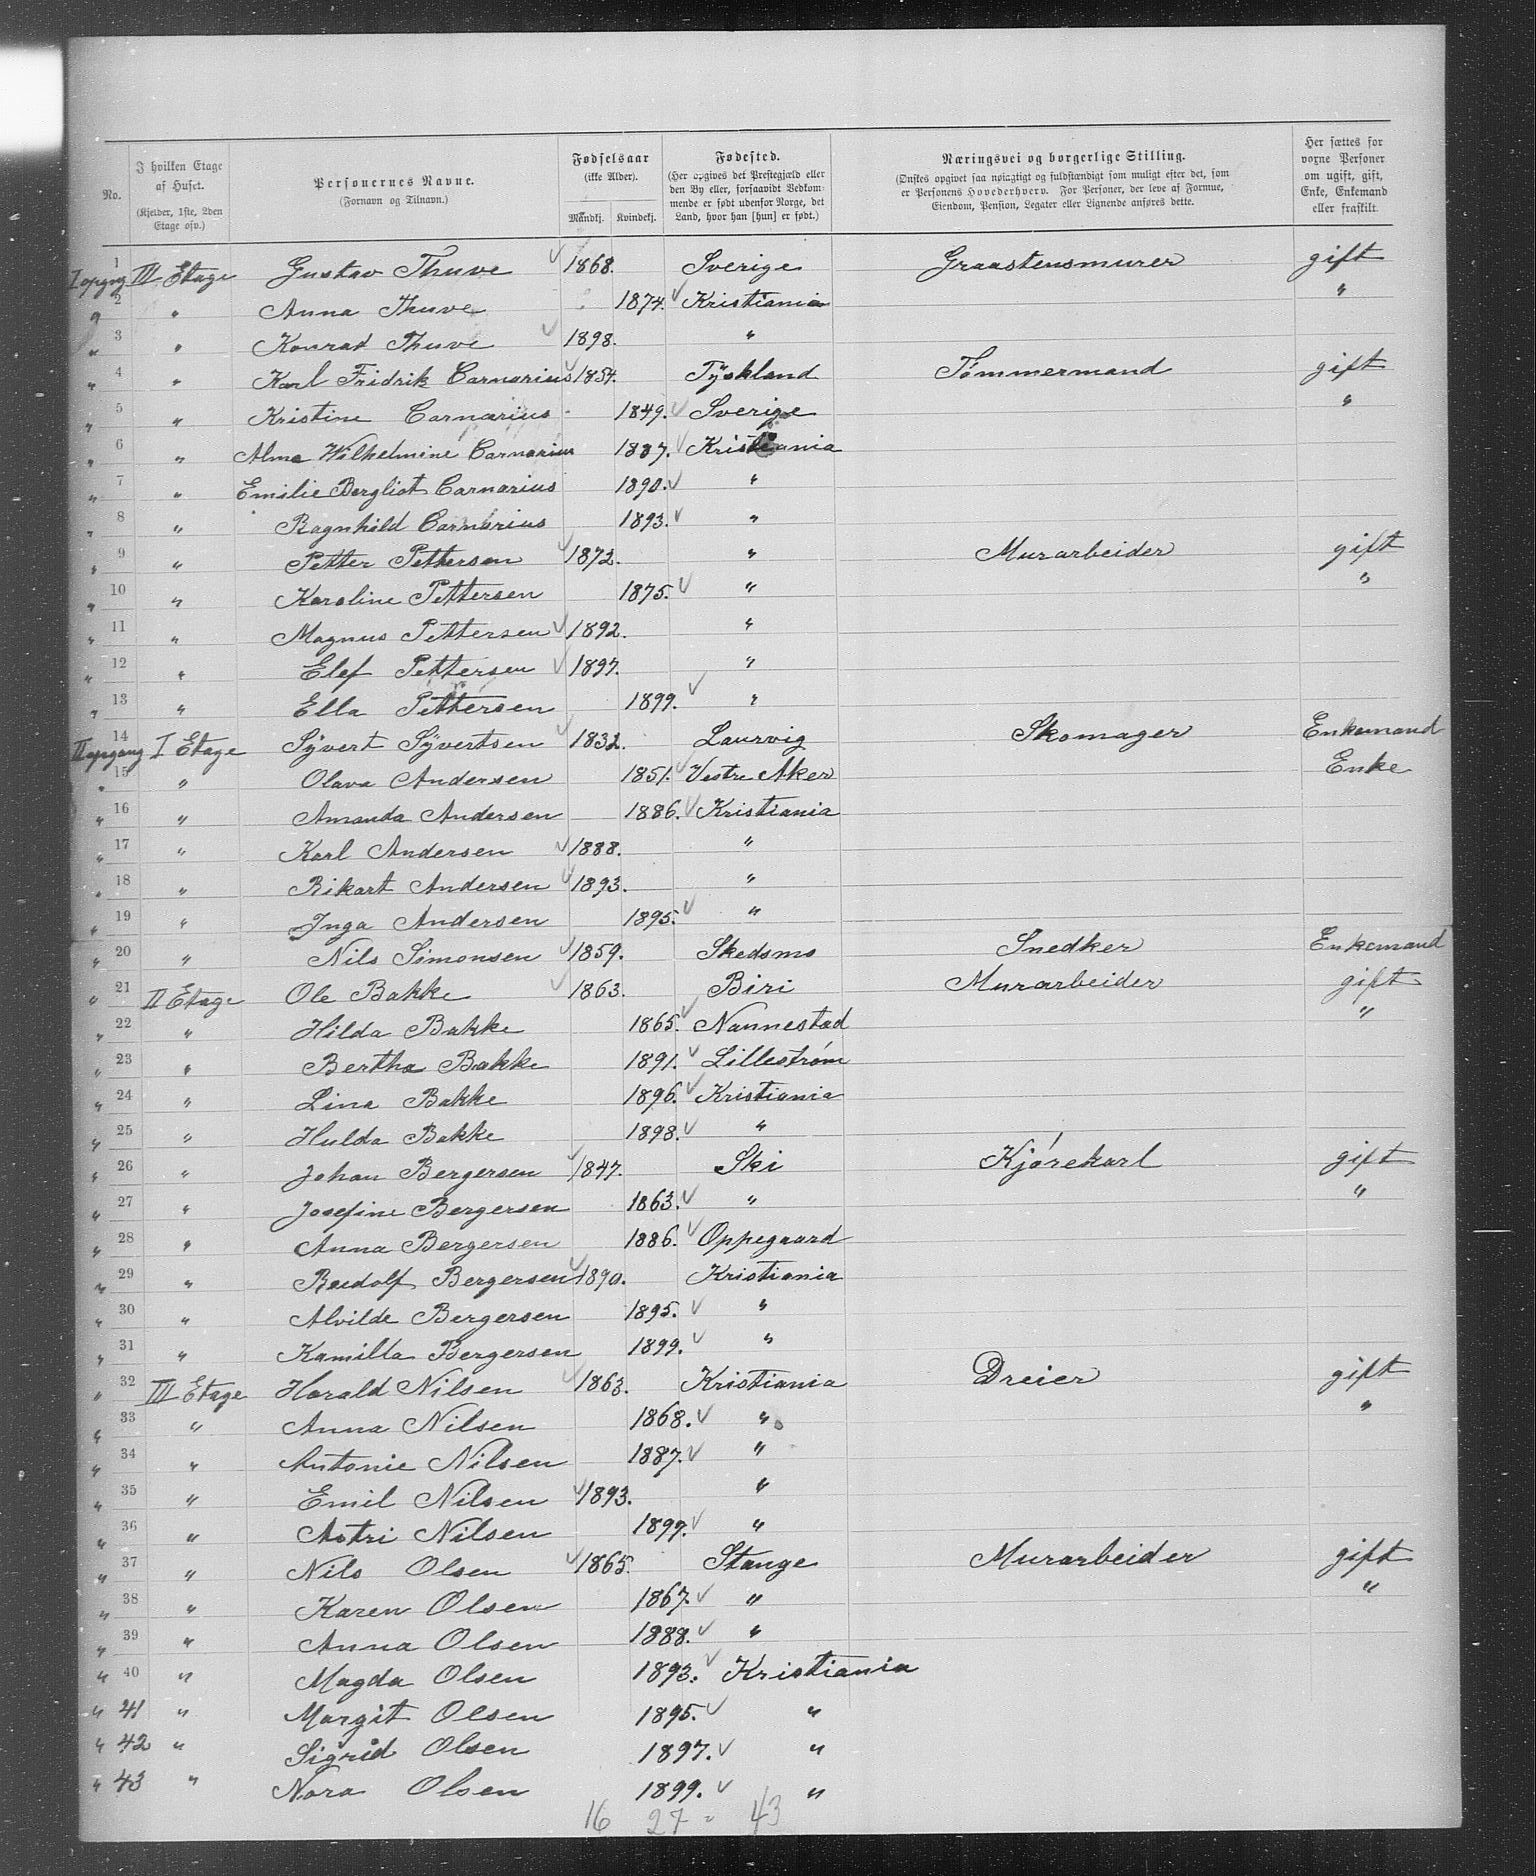 No.
I hvilken Etage af Huset. (Kjelder, 1ste, 2den Etage osv.)
Personernes Navne. (Fornavn og Tilnavn.)
Fødselsaar (ikke Alder). Mandkj. Kvindekj.
Fødested. (Her opgives det Prestegjæld eller den By eller, forsaavidt Vedkommende er født udenfor Norge, det Land, hvor han [hun] er født.)
Næringsvei og borgerlige Stilling. (Ønskes opgivet saa nøiagtigt og fuldstændigt som muligt efter det, som er Personens Hovederhverv. For Personer, der leve af Formue, Eiendom, Pension, Legater eller Lignende anføres dette.
Her sættes for voxne Personer om ugift, gift, Enke, Enkemand eller fraskilt.
I opgng 1 III Etage Gustav Thuve 1868. Sverige Graastensmurer gift
" 2 " Anna Thuve 1874. Kristiania "
" 3 " Konrad Thuve 1898. "
" 4 " Karl Fridrik Carnarius 1854. Tyskland Tømmermand gift
" 5 " Kristine Carnarius 1849. Sverige "
" 6 " Alma Wilhelmine Carnarius 1887. Kristiania
" 7 " Emilie Bergliot Carnarius 1890. "
" 8 " Ragnhild Carnarius 1893. "
" 9 " Petter Pettersen 1872. " Murarbeider gift
" 10 " Karoline Pettersen 1875. " "
" 11 " Magnus Pettersen 1892. "
" 12 " Elef Pettersen 1897. "
" 13 " Ella Pettersen 1899. "
II opgang 14 I Etage Syvert Syvertsen 1832. Laurvig Skomager Enkemand
" 15 " Olava Andersen 1851. Vestre Aker Enke
" 16 " Amanda Andersen 1886. Kristiania
" 17 " Karl Andersen 1888. "
" 18 " Rikart Andersen 1893. "
" 19 " Inga Andersen 1895. "
" 20 " Nils Simonsen 1859. Skedsmo Snedker Enkemand
" 21 II Etage Ole Bakke 1863. Biri Murarbeider gift
" 22 " Hilda Bakke 1865. Nannestad "
" 23 " Bertha Bakke 1891. Lillestrøm
" 24 " Lina Bakke 1896. Kristiania
" 25 " Hulda Bakke 1898. "
" 26 " Johan Bergersen 1847. Ski Kjørekarl gift
" 27 " Josefine Bergersen 1863. " "
" 28 " Anna Bergersen 1886. Oppegaard
" 29 " Rudolf Bergersen 1890. Kristiania
" 30 " Alvilde Bergersen 1895. "
" 31 " Kamilla Bergersen 1899. "
" 32 III Etage Harald Nilsen 1863. Kristiania Dreier gift
" 33 " Anna Nilsen 1868. " "
" 34 " Antonie Nilsen 1887. "
" 35 " Emil Nilsen 1893. "
" 36 " Astri Nilsen 1897. "
" 37 " Nils Olsen 1865. Stange Murarbeider gift
" 38 " Karen Olsen 1867. " "
" 39 " Anna Olsen 1888. "
" 40 " Magda Olsen 1893. Kristiania
" 41 " Margit Olsen 1895. "
" 42 " Sigrid Olsen 1897. "
" 43 " Nora Olsen 1899. "
16 27 = 43